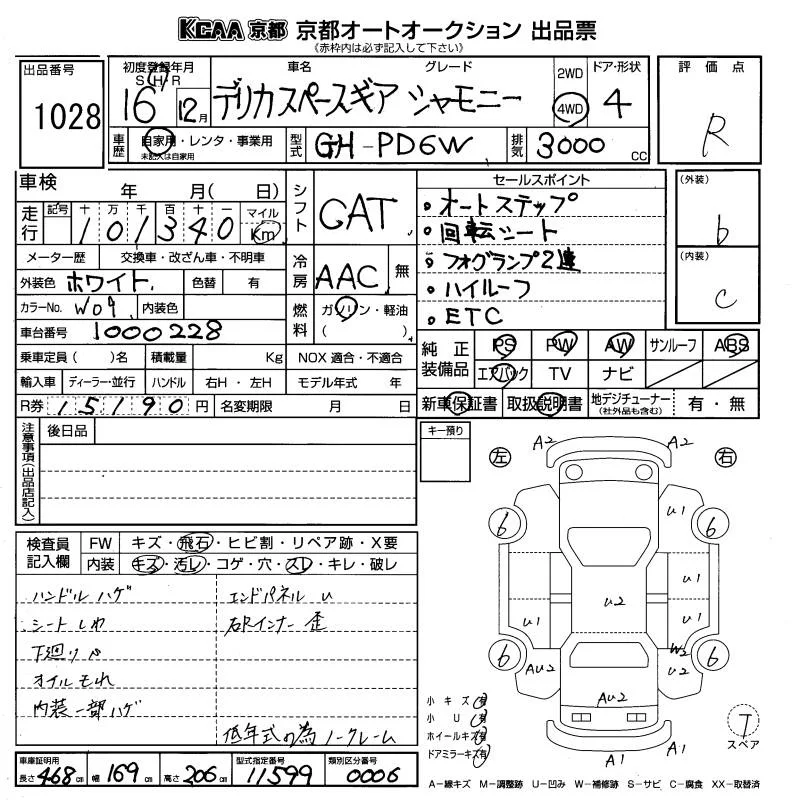 KCAA 京都 京都オートオークション 出品票
《赤枠内は必ず記入して下さい》
出品番号
1028
初度登録年月
S H R
16 12月
車名 グレード
デリカスペースギア シャモニー
2WD
4WD
ドア・形状
4
評価点
R
車歴
自家用・レンタ・事業用
未記入は自家用
型式
GH-PD6W
排気
3000 CC
車検 年 月( 日)
走行
記号 十 万 千 百 十 一
101340
マイル
Km
シフト
CAT
セールスポイント
・オートステップ
・回転シート
・フォグランプ2連
・ハイルーフ
・ETC
(外装)
b
(内装)
c
メーター歴 交換車・改ざん車・不明車
外装色 ホワイト 色替 有
冷房
AAC 無
カラーNo. W09 内装色
燃料
ガソリン・軽油
( )
車台番号 1000228
乗車定員( )名 積載量 Kg NOX 適合・不適合
輸入車 ディーラー・並行 ハンドル 右H・左H モデル年式 年
R券 15190円 名変期限 月 日
純正装備品
PS PW AW サンルーフ ABS
エアバック TV ナビ
新車保証書 取扱説明書 地デジチューナー (社外品も含む) 有・無
注意事項(出品店記入)
後日品
キー預り
左 右
A2 A2
U1
6 6
U1
U2
U1 U1
W2
6 6
AU2 U2
AU2
A1 A1
T
スペア
小キズ(有)
小U(有)
ホイールキズ(有)
ドアミラーキズ(有)
検査員記入欄
FW キズ・飛石・ヒビ割・リペア跡・X要
内装 キズ・汚レ・コゲ・穴・スレ・キレ・破レ
ハンドルハゲ エンドパネルU
シートしわ 右Rインナー歪
下廻りS
オイルもれ
内装一部ハゲ
低年式の為ノークレーム
車庫証明用
長さ468cm 幅169cm 高さ206cm
型式指定番号
11599
類別区分番号
0006
A-線キズ M-調整跡 U-凹み W-補修跡 S-サビ C-腐食 XX-取替済